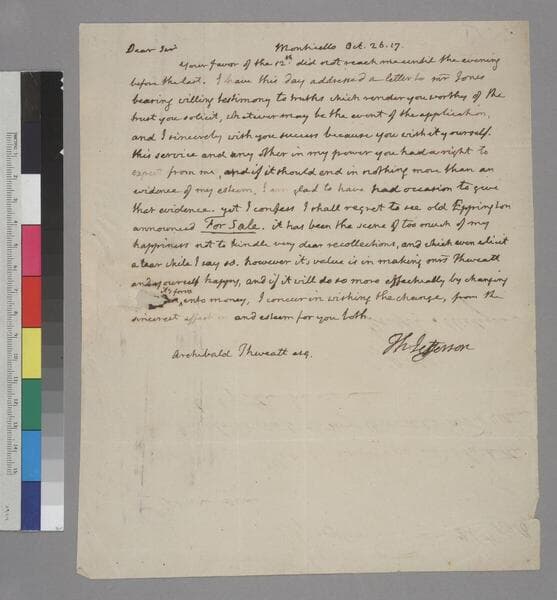 Dear Sir Monticello Oct. 26. 17.
Your favor of the 12th did not reach me until the evening
before the last. I have this day addressed a letter to mr Jones
bearing willing testimony to truths which render you worthy of the
trust you solicit, whatever may be the event of the application,
and I sincerely wish you success because you wish it yourself.
this service and any other in my power you had a right to
expect from me, and if it should end in nothing more than an
evidence of my esteem, I am glad to have had occasion to give
that evidence. yet I confess I shall regret to see old Eppington
announced For Sale. it has been the scene of too much of my
happiness not to kindle very dear recollections, and which even elicit
a tear while I say so. however it's value is in making mrs Thweatt
and yourself happy, and if it will do so more effectually by changing
it's form
into money, I concur in wishing the change, from the
sincerest and esteem for you both.
Th: Jefferson
Archibald Thweatt esq.